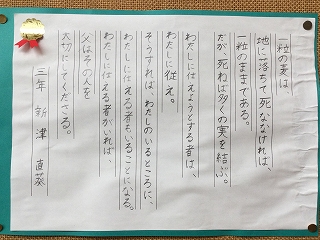 一粒の麦は、
地に落ちて死ななければ、
一粒のままである。
だが、死ねば多くの実を結ぶ。
わたしに仕えようとする者は、
わたしに従え。
そうすれば、わたしのいるところに、
わたしに仕える者もいることになる。
わたしに仕える者がいれば、
父はその人を
大切にしてくださる。
三年 新津 直葵